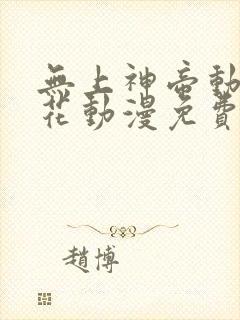 無上神帝動
花動漫免費
趙博